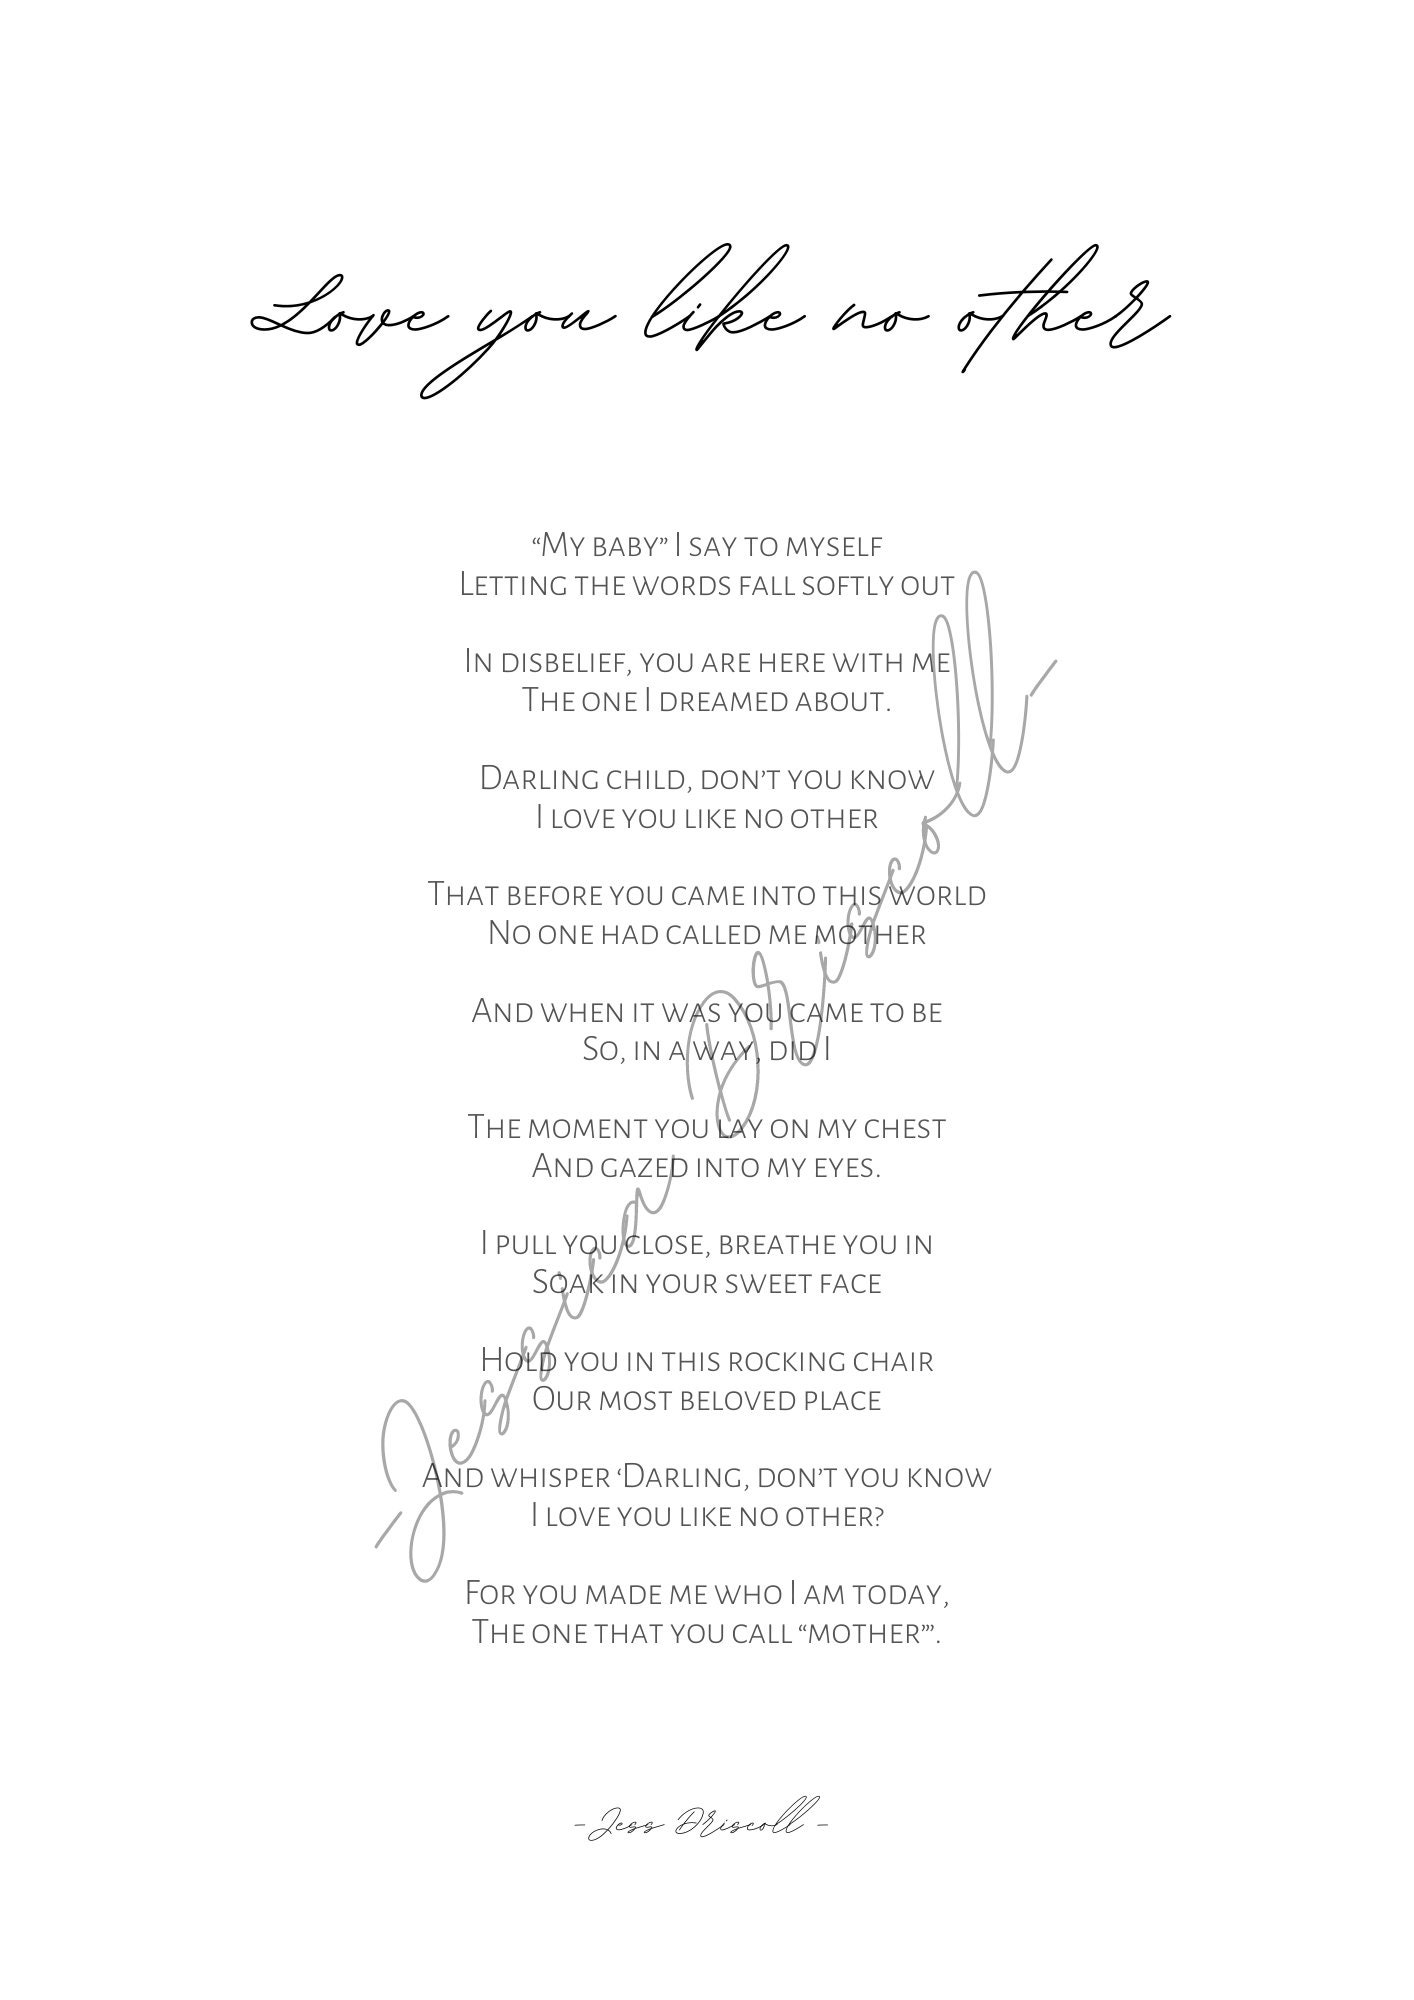 Love you like no other
“My baby” I say to myself
Letting the words fall softly out
In disbelief, you are here with me
The one I dreamed about.
Darling child, don’t you know
I love you like no other
That before you came into this world
No one had called me mother
And when it was you came to be
So, in a way, did I
The moment you lay on my chest
And gazed into my eyes.
I pull you close, breathe you in
Soak in your sweet face
Hold you in this rocking chair
Our most beloved place
And whisper ‘Darling, don’t you know
I love you like no other?
For you made me who I am today,
The one that you call “mother”’.
-Jessica Driscoll-
-Jess Driscoll -